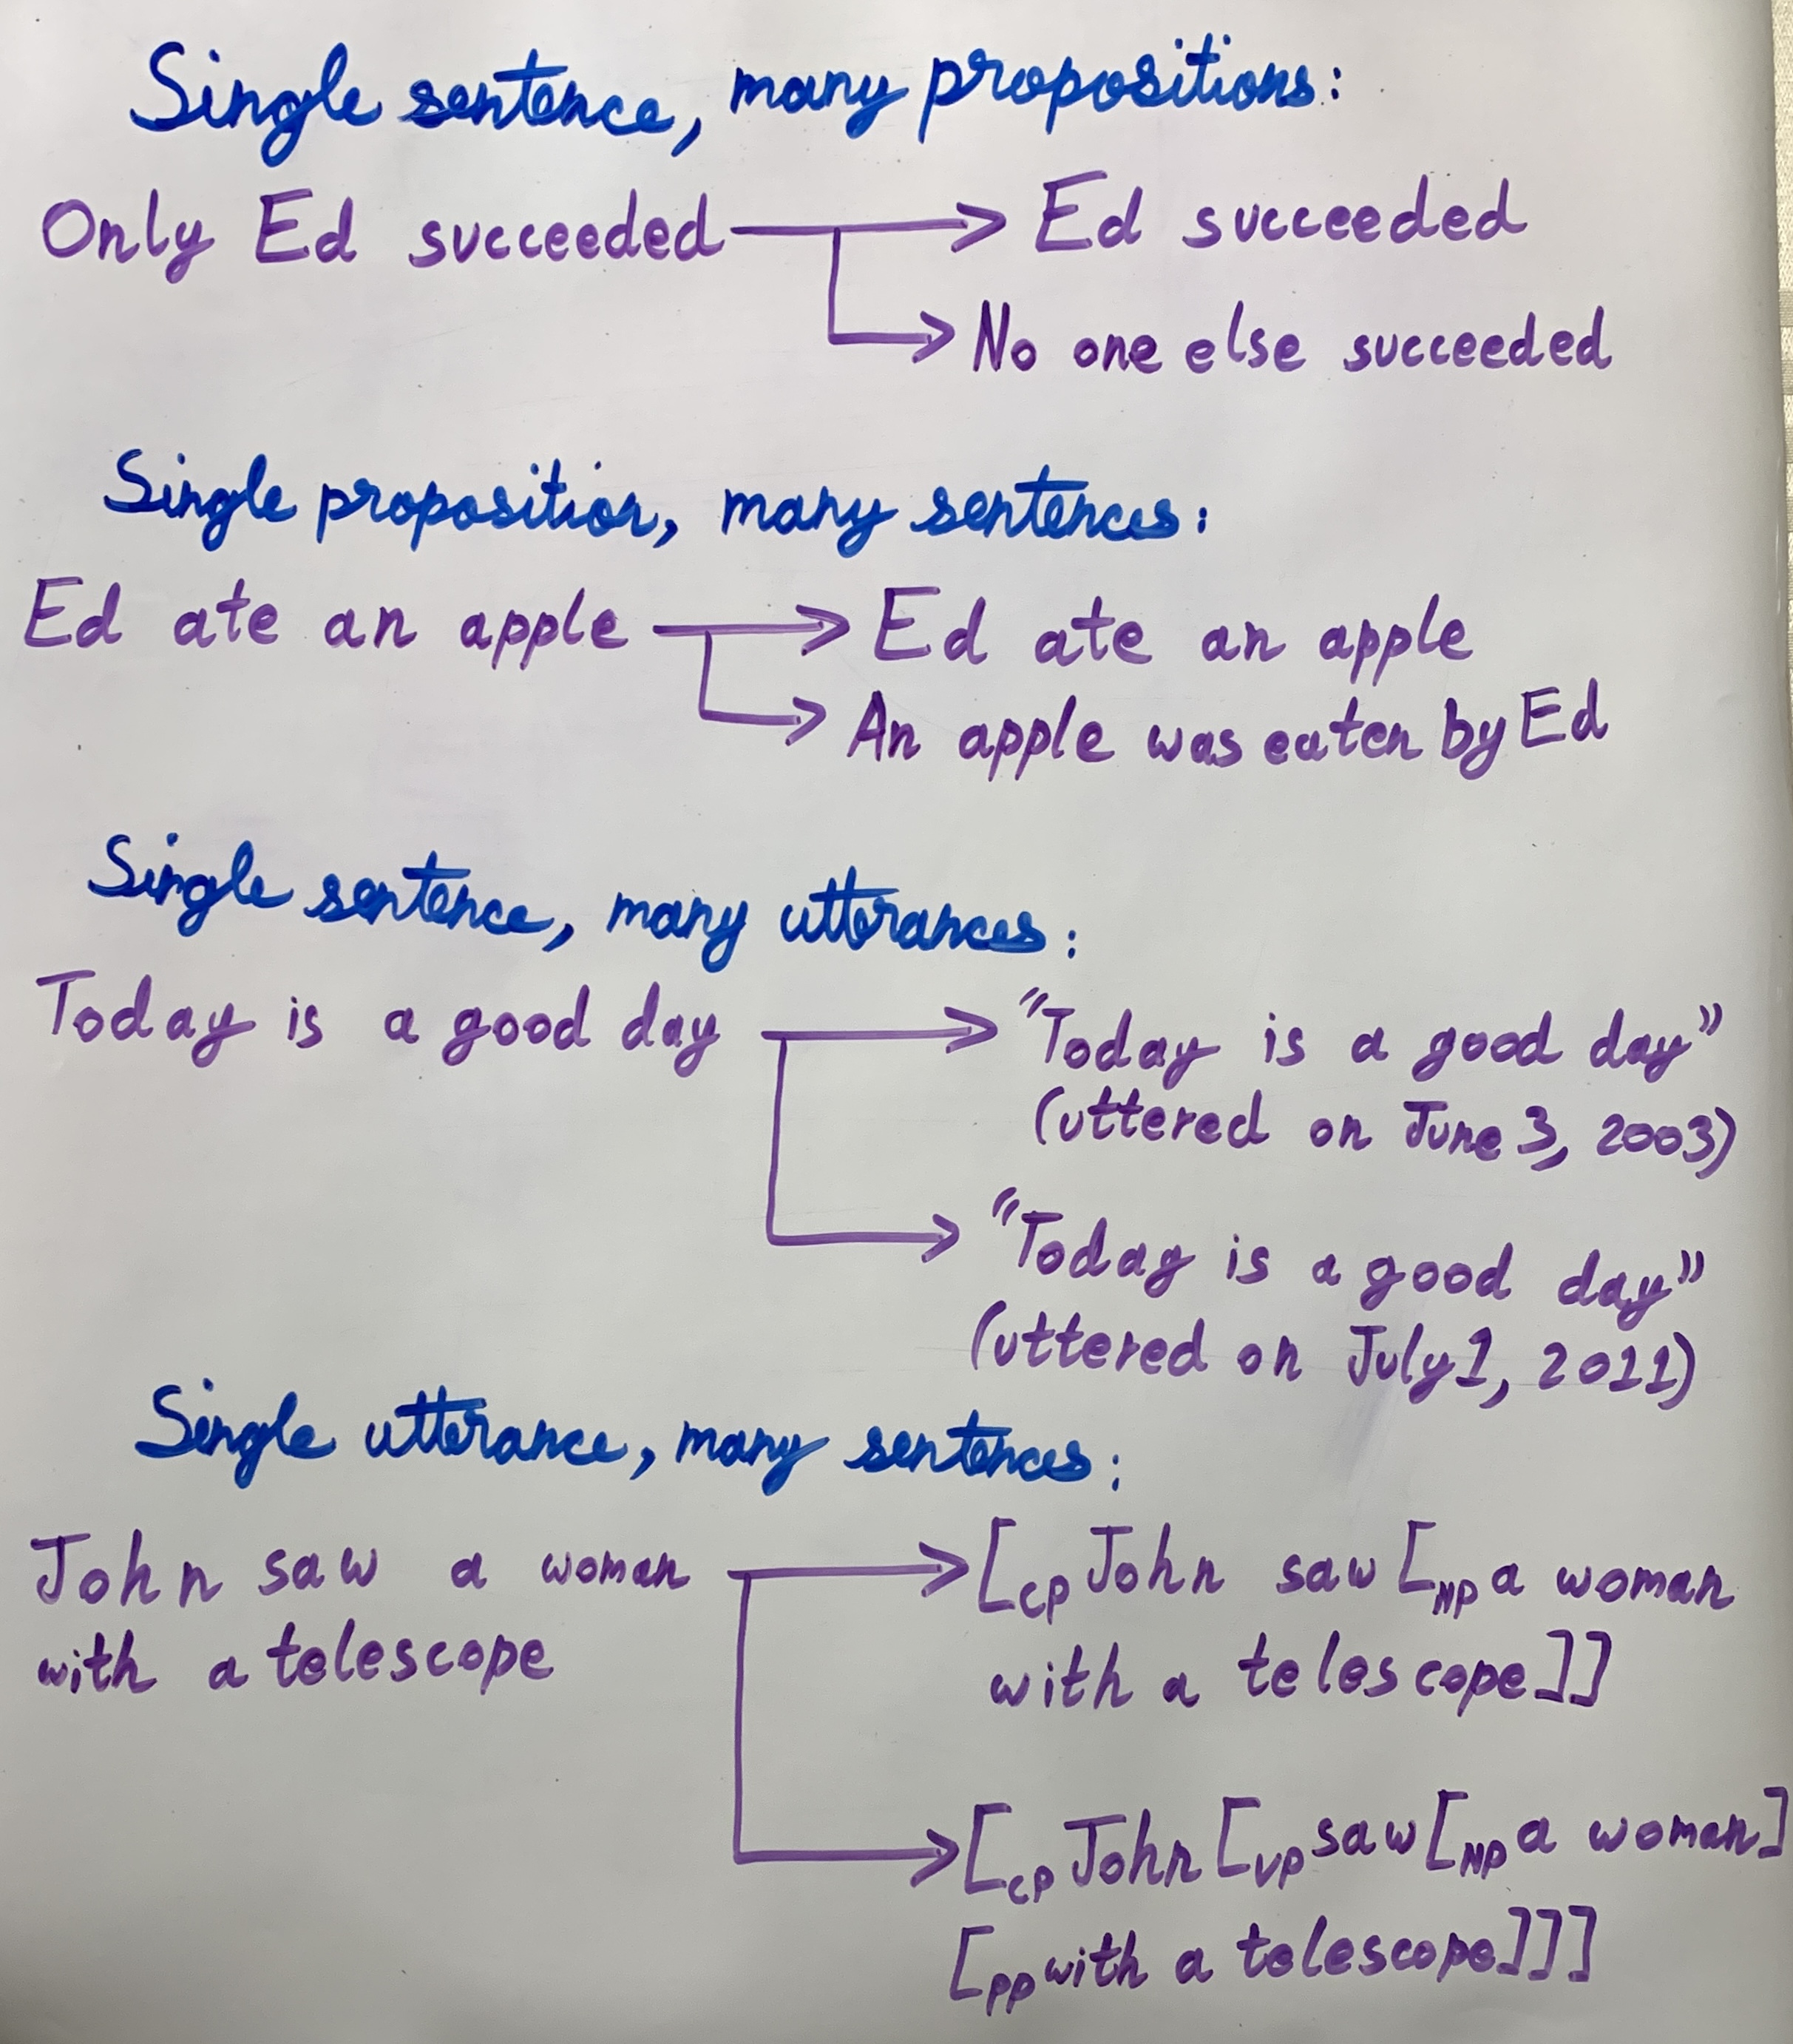 Single sentence, many propositions:
Only Ed succeeded → Ed succeeded
→ No one else succeeded
Single proposition, many sentences:
Ed ate an apple → Ed ate an apple
→ An apple was eaten by Ed
Single sentence, many utterances:
Today is a good day → "Today is a good day"
(uttered on June 3, 2003)
→ "Today is a good day"
(uttered on July 1, 2011)
Single utterance, many sentences:
John saw a woman → [CP John saw [NP a woman
with a telescope with a telescope]]
→ [CP John [VP saw [NP a woman]
[PP with a telescope]]]